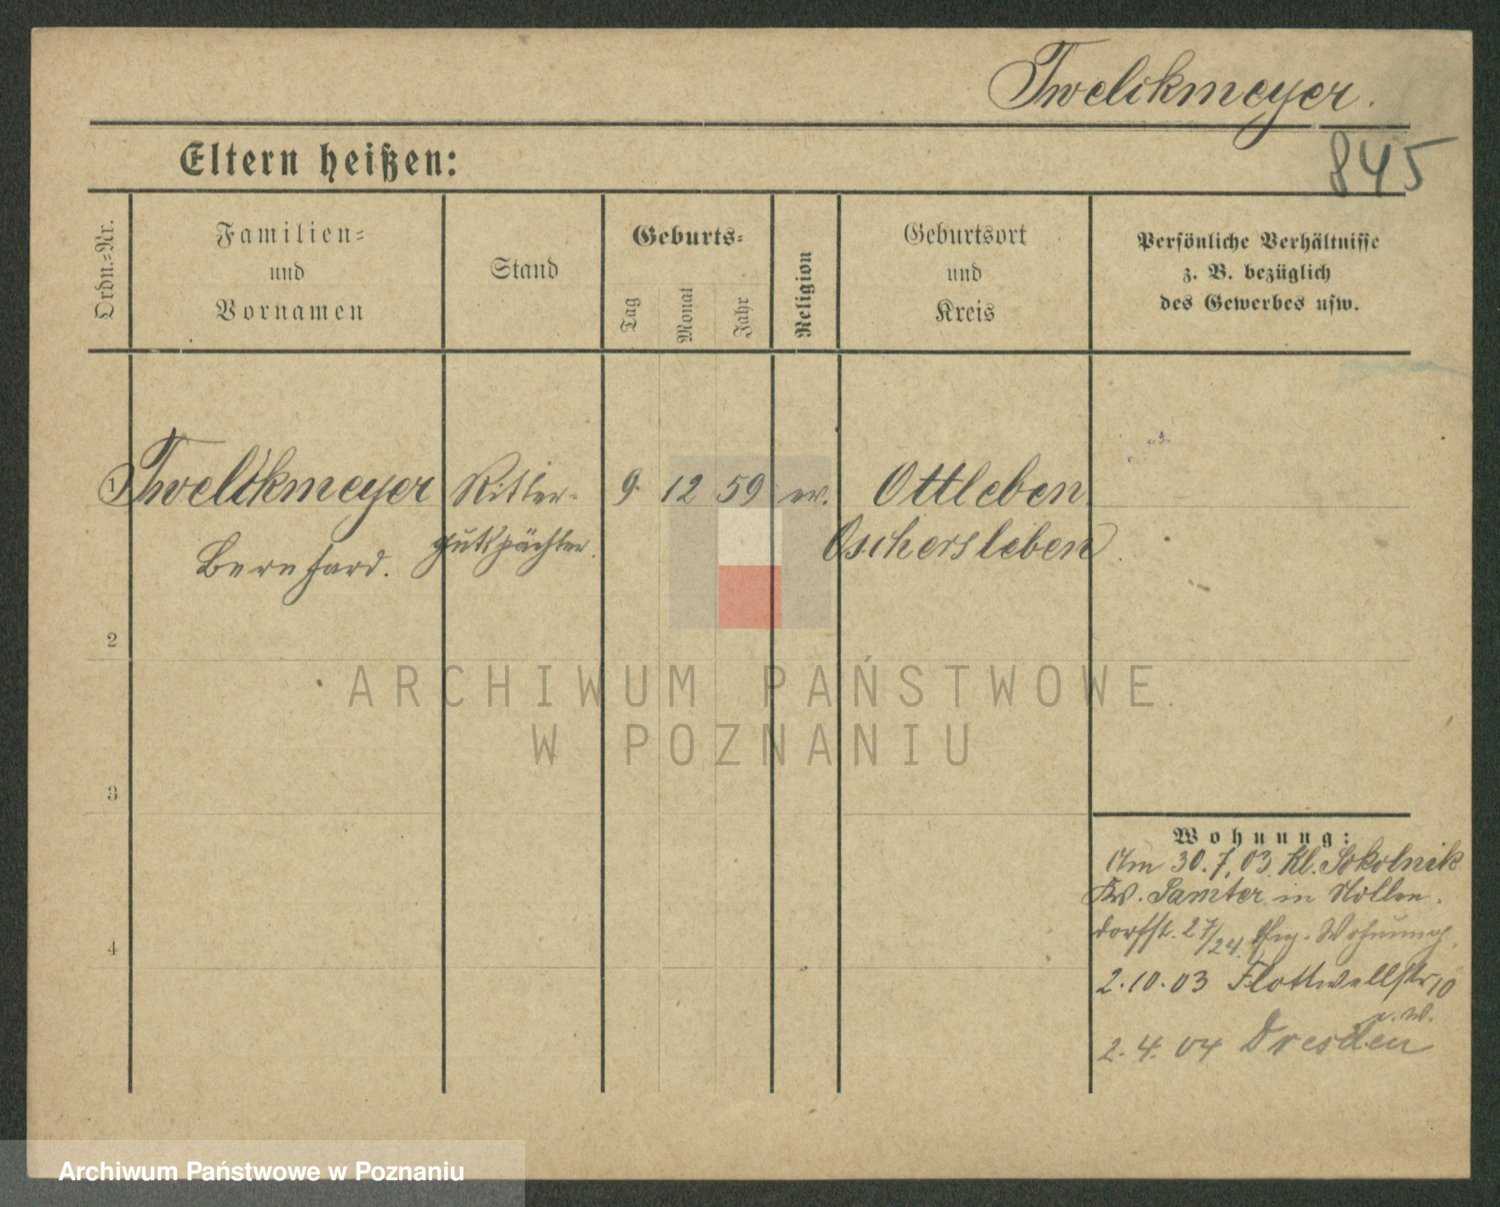 Twelikmeyer.
845
Eltern heißen:
Ordn.-Nr.
Familien- und Vornamen
Stand
Geburts-
Tag
Monat
Jahr
Religion
Geburtsort und Kreis
Persönliche Verhältnisse
z. B. bezüglich
des Gewerbes usw.
1 Twelikmeyer Ritter- 9. 12 59 ev. Ottleben
Bernhard. gutspächter. Oschersleben
2
ARCHIWUM PAŃSTWOWE
W POZNANIU
3
Wohnung:
Am 30.7.03. Kl. Sokolnik
Kr. Samter in Nollen-
dorfst. 27/24. Wohnung.
4
2.10.03 Flottwellstr 10
2.4.04 Dresden
Archiwum Państwowe w Poznaniu